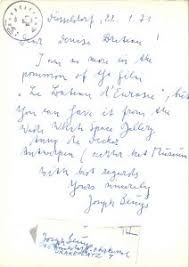 Düsseldorf, 22. 1. 71
Dear Denise
I am no more in the
possession of the film
"Eurasie", but
You can have it from the
Wide White Space Gallery
Anny de Decker
Antwerpen
With best regards
Yours sincerely
Joseph Beuys
Joseph Beuys